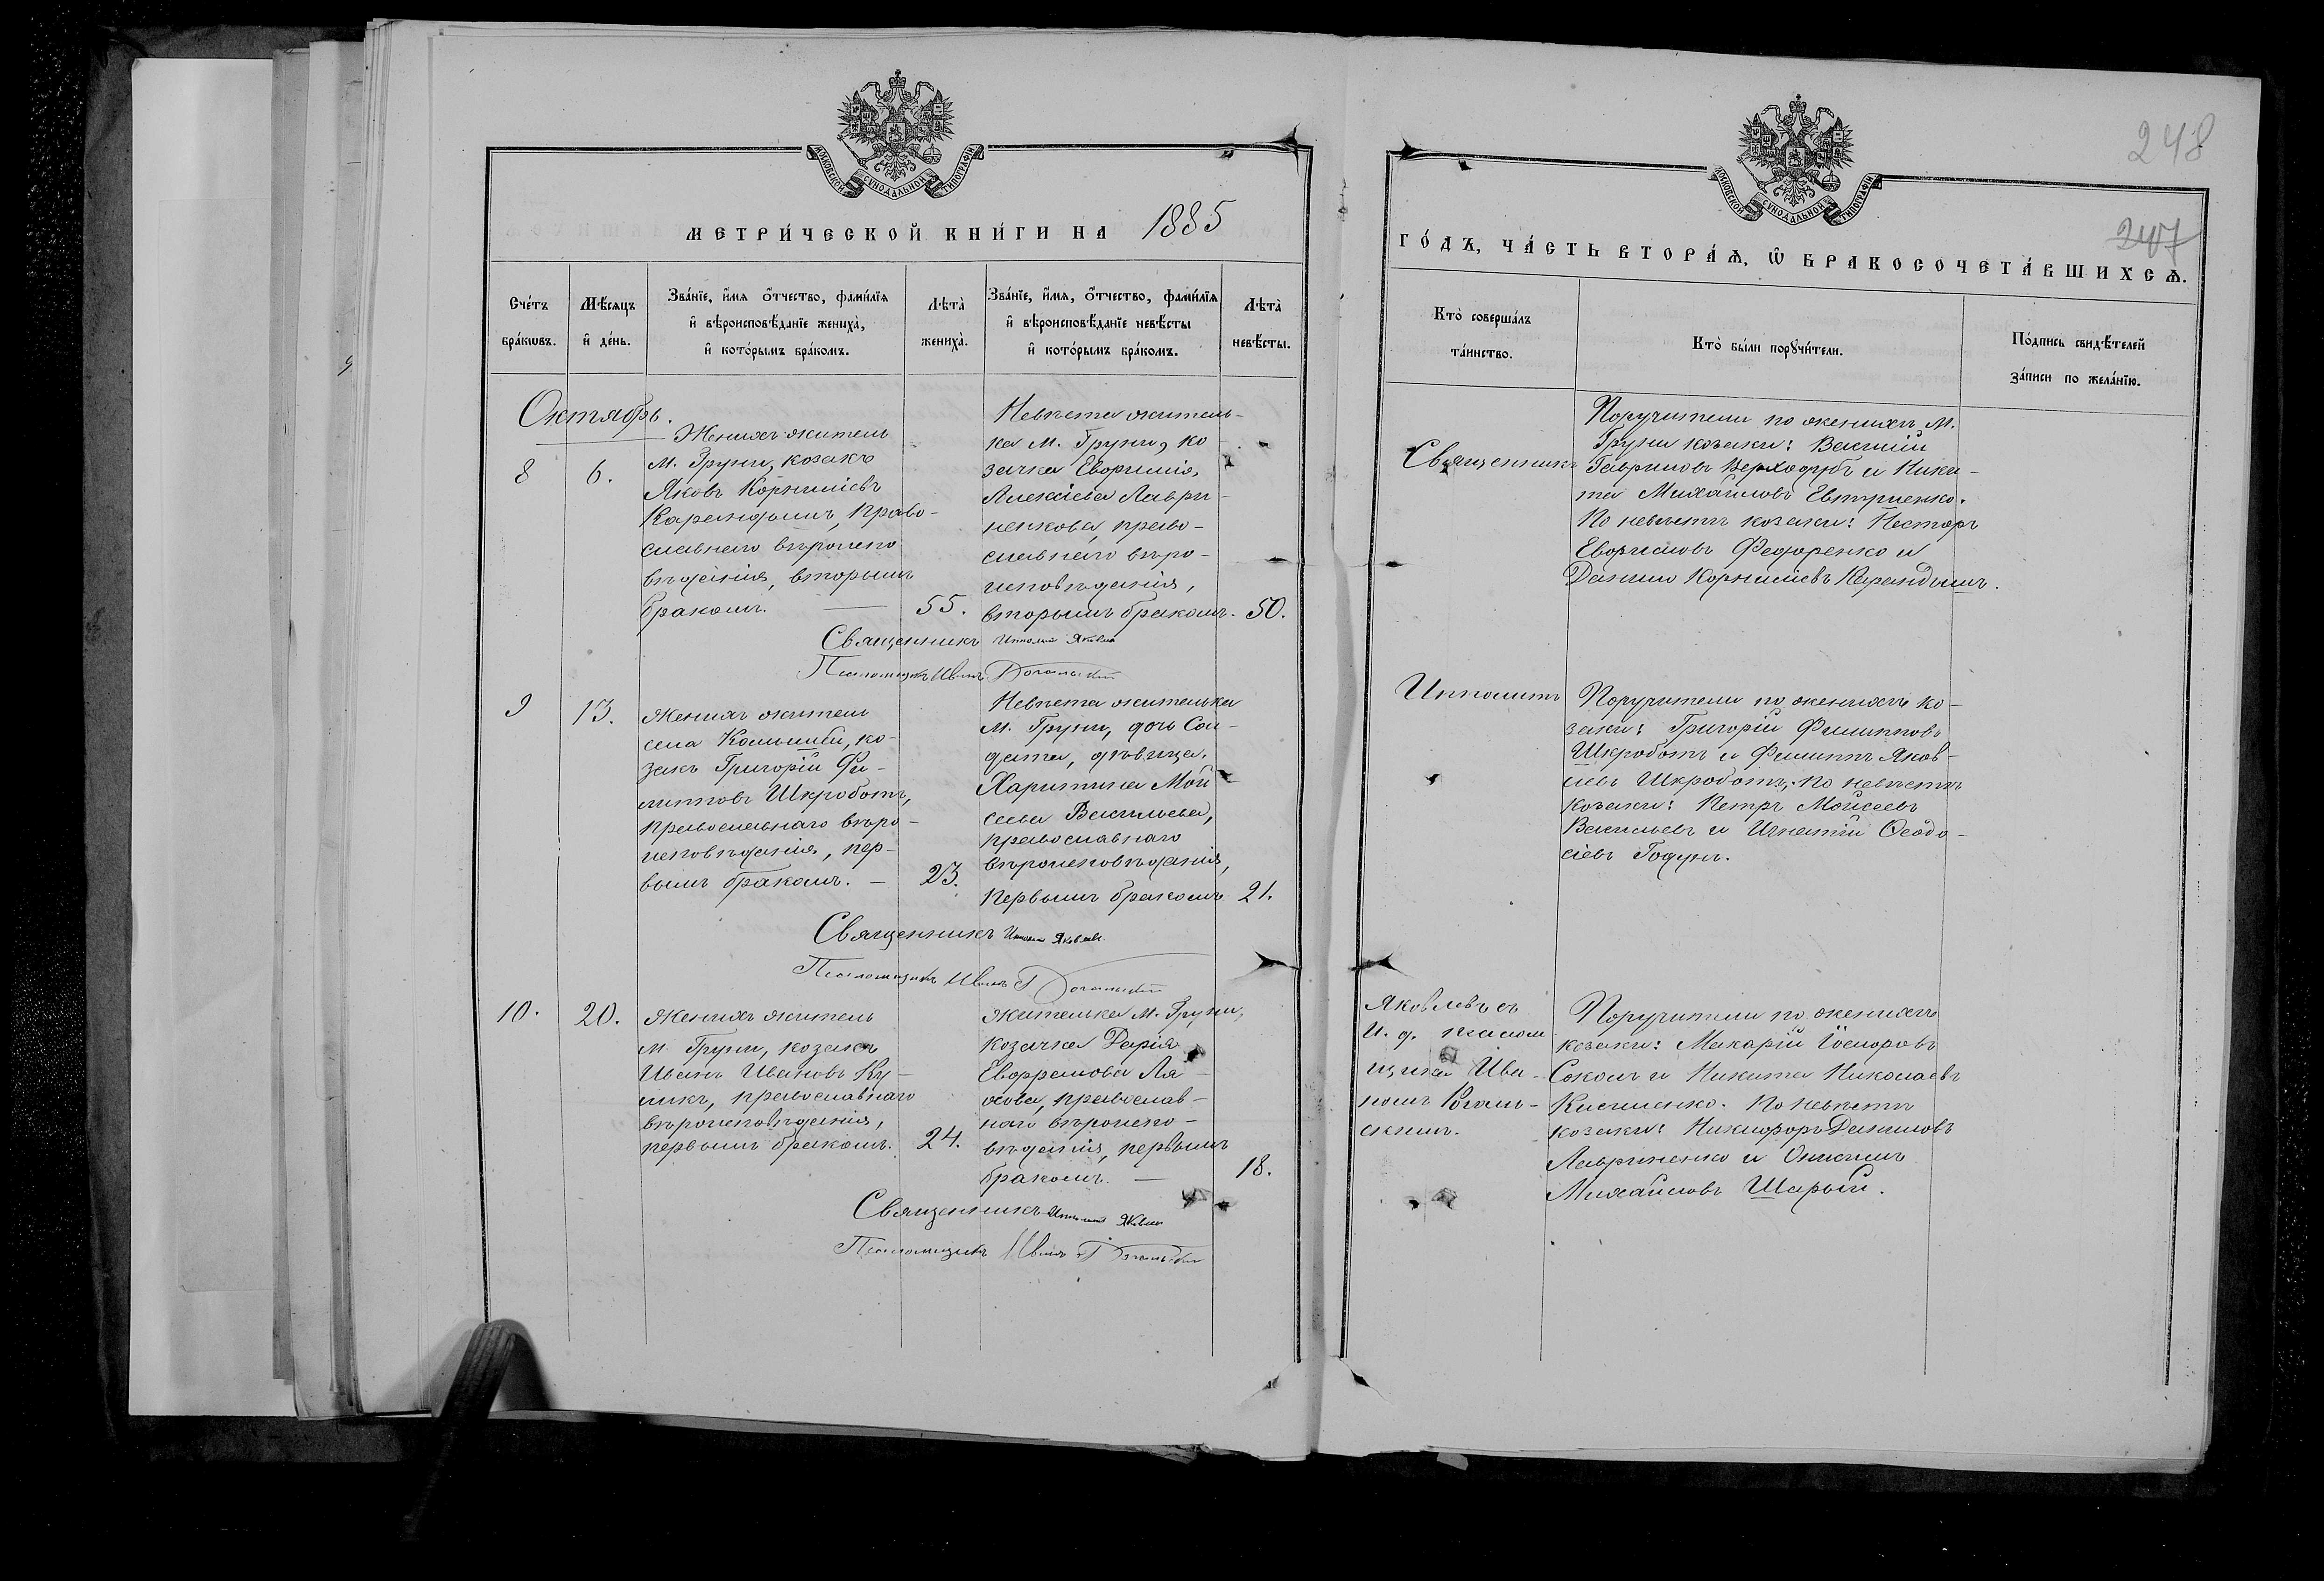 МОСКОВСКОЙ СѴНОДАЛЬНОЙ ТИПОГРАФІИ
МЕТРИ́ЧЕСКОЙ КНИ́ГИ НА 1885
Сче́тъ бра́кωвъ.
Мѣ́сяцъ и҆ де́нь.
Зва́нїе, и҆́мя ѻ҆́тчество, фами́лїя
и҆ вѣроисповѣ́данїе жениха̀,
и҆ кото́рымъ бра́комъ.
Лѣта̀ жениха̀.
Зва́нїе, и҆́мя, ѻ҆́тчество, фами́лїя
и҆ вѣроисповѣ́данїе невѣ́сты
и҆ кото́рымъ бра́комъ.
Лѣта̀ невѣ́сты.
Октябрь.
8
6.
Женихъ житель
м. Груни, козакъ
Яковъ Корниліевъ
Карандашъ, право-
славнаго вѣроиспо
вѣданія, вторымъ
бракомъ. —
55.
Невѣста житель-
ка м. Груни, ко
зачка Евфимія,
Алексіева Лаври-
ненкова, право-
славнаго вѣро-
исповѣданія,
вторымъ бракомъ.
50.
Священникъ Ипполитъ Яковлевъ
Псаломщикъ Иванъ
9
13.
Женихъ житель
села ко-
закъ Григорій Фи-
липповъ Шкроботъ,
православнаго вѣро-
исповѣданія, пер-
вымъ бракомъ. —
23.
Невѣста жителька
м. Груни, дочь Сол-
дата, дѣвица,
Харитина Мой
сеева Васильева,
православнаго
вѣроисповѣданія,
первымъ бракомъ
21.
Священникъ Ипполитъ Яковлевъ
Псаломщикъ Иванъ
10.
20.
Женихъ житель
м. Груни, козакъ
Иванъ Ивановъ Ку-
ликъ, православнаго
вѣроисповѣданія,
первымъ бракомъ.
24.
жителька м. Груни,
козачка Дарія
Евфремова
православ-
наго вѣроиспо-
вѣданія, первымъ
бракомъ. —
18.
Священникъ Ипполитъ Яковлевъ
Псаломщикъ Иванъ
248
247
МОСКОВСКОЙ СѴНОДАЛЬНОЙ ТИПОГРАФІИ
ГО́ДЪ, ЧА́СТЬ ВТОРА́Ѧ, Ѡ҆ БРАКОСОЧЕТА́ВШИХСѦ.
Кто̀ соверша́лъ
та́инство.
Кто̀ бы́ли порꙋчи́тели.
По́дпись свидѣ́телей
за́писи по жела́нїю.
Священникъ
Ипполитъ
Яковлевъ съ
И. д. псалом
щика Ива-
номъ
Поручители по женихѣ м.
Груни козаки: Василій
Гавриловъ Верходубъ и Ники-
та Михайловъ
По невѣстѣ козаки: Несторъ
Евфимовъ Федоренко и
Даніилъ Корниліевъ Карандашъ.
Поручители по женихѣ ко-
заки: Григорій Филипповъ
Шкроботъ и Филиппъ Яков-
левъ Шкроботъ; по невѣстѣ
козаки: Петръ Мойсеевъ
Васильевъ и Игнатій Ѳеодо-
сіевъ Годунъ.
Поручители по женихѣ
козаки: Макарій
Соколъ и Никита Николаевъ
Кисиленко. По невѣстѣ
козаки: Никифоръ Даниловъ
Лавриненко и
Михайловъ Шарый.